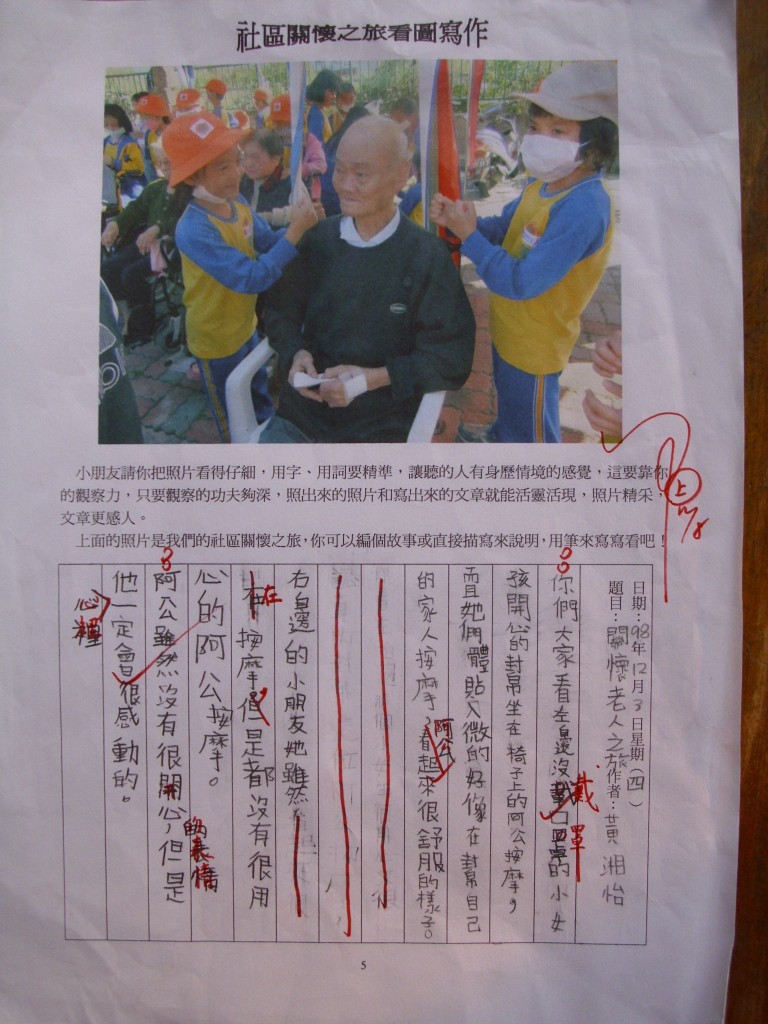 社區關懷之旅看圖寫作
小朋友請你把照片看得仔細，用字、用詞要精準，讓聽的人有身歷情境的感覺，這要靠你
的觀察力，只要觀察的功夫夠深，照出來的照片和寫出來的文章就能活靈活現，照片精采，
文章更感人。
上面的照片是我們的社區關懷之旅，你可以編個故事或直接描寫來說明，用筆來寫寫看吧！
上
日期：98年12月3日星期（四）
題目：關懷老人之旅作者：黃湘怡
你們大家看左邊沒戴口罩的小女
戴
罩
孩開心的幫坐在椅子上的阿公按摩，
而且她們體貼入微的好像在幫自己
的家人按摩，看起來很舒服的樣子。
阿公
右邊的小朋友她雖然
在
在按摩但是都沒有很用
心的阿公按摩。
阿公雖然沒有很開心，但是
的表情
他一定會很感動的。
心裡
5